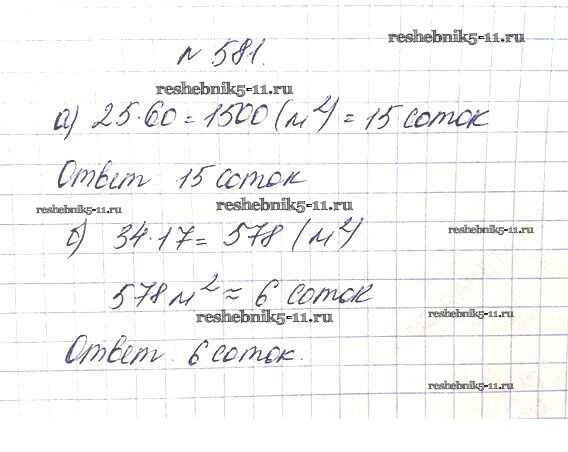 № 581.
reshebnik5-11.ru
reshebnik5-11.ru
а) 25·60 = 1500 (м²) = 15 соток
Ответ 15 соток
reshebnik5-11.ru
reshebnik5-11.ru
б) 34·17 = 578 (м²)
reshebnik5-11.ru
578 м² ≈ 6 соток
reshebnik5-11.ru
reshebnik5-11.ru
Ответ 6 соток.
reshebnik5-11.ru